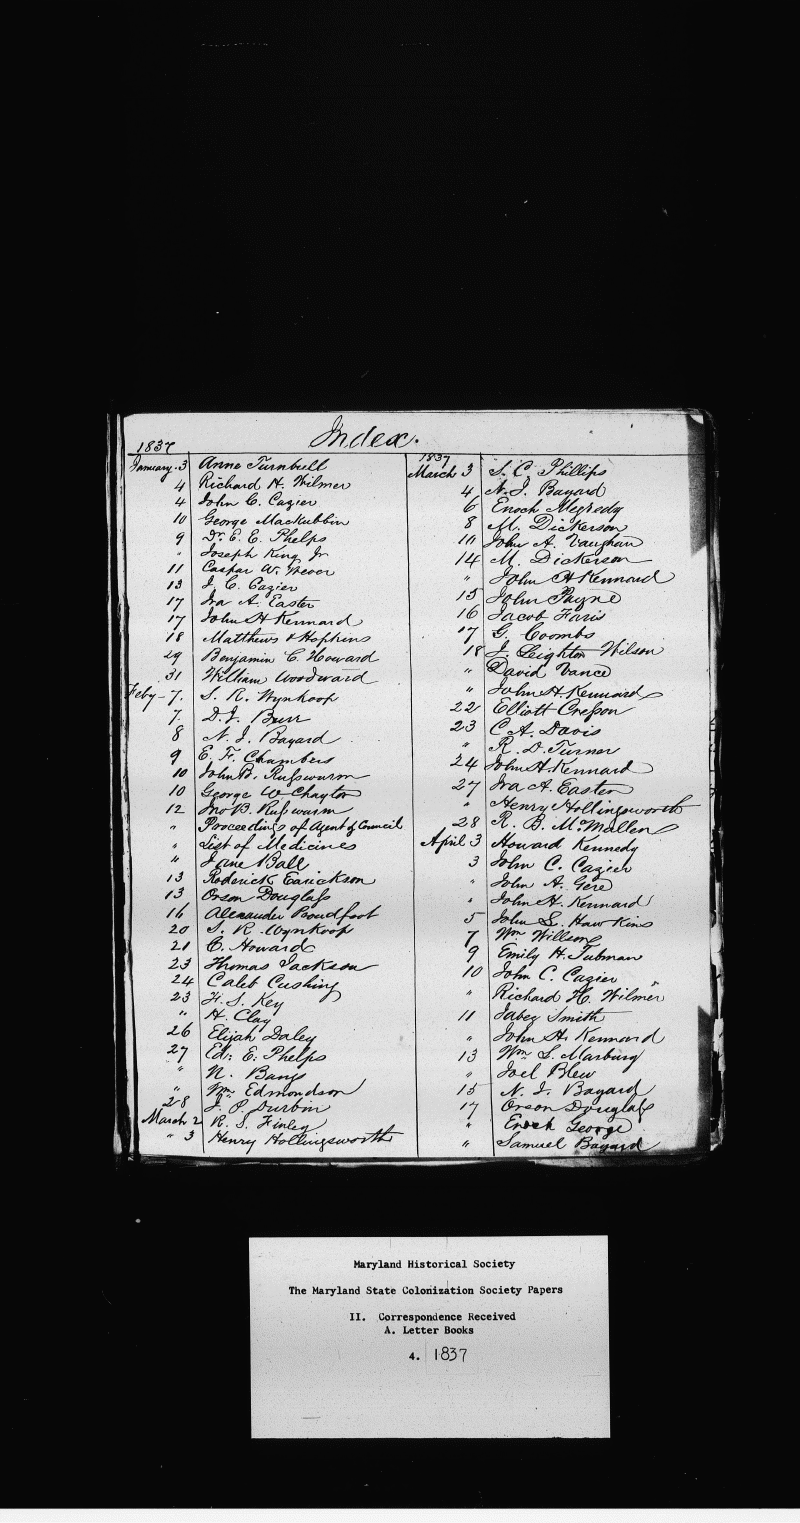 Index.
1837
January 3 Anne Turnbull
4 Richard H. Wilmer
4 John C. Cazier
10 George Mackubbin
9 Dr. E. E. Phelps
" Joseph King Jr
11 Caspar W. Wever
13 J. C. Cazier
17 Ira A. Easter
17 John H Kennard
18 Matthews & Hopkins
29 Benjamin C. Howard
31 William Woodward
Feby - 7. S. R. Wynkoop
7. D. J. Burr
8 N. J. Bayard
9 E. F. Chambers
10 John B. Russwurm
10 George W Chayter
12 Jno B. Russwurm
" Proceedings of Agent & Council
" List of Medicines
" Jane Ball
13 Roderick Earickson
13 Orson Douglass
16 Alexander Proudfoot
20 S. R. Wynkoop
21 C. Howard
23 Thomas Jackson
24 Caleb Cushing
23 F. S. Key
" H. Clay
26 Elijah Daley
27 Ed: E: Phelps
" N. Bangs
" Wm. Edmondson
28 J. P. Durbin
March 2 R. S. Finley
" 3 Henry Hollingsworth
1837
March 3 S. C. Phillips
4 N. J. Bayard
6 Enoch Megredy
8 M. Dickerson
10 John A. Vaughan
14 M. Dickerson
" John H Kennard
15 John Payne
16 Jacob Faris
17 G. Coombs
18 J. Leighton Wilson
" David Vance
" John H. Kennard
22 Elliott Cresson
23 C A. Davis
" R. D. Turner
24 John H. Kennard
27 Ira A. Easter
" Henry Hollingsworth
28 R. B. McMullen
April 3 Howard Kennedy
3 John C. Cazier
" John A. Gere
" John H. Kennard
5 John S. Hawkins
7 Wm Willson
9 Emily H. Tubman
10 John C. Cazier
" Richard H. Wilmer
11 Jabez Smith
" John H. Kennard
13 Wm. S. Marbury
" Joel Blew
15 N. J. Bayard
17 Orson Douglass
" Enoch George
" Samuel Bayard
Maryland Historical Society
The Maryland State Colonization Society Papers
II. Correspondence Received
A. Letter Books
4. 1837